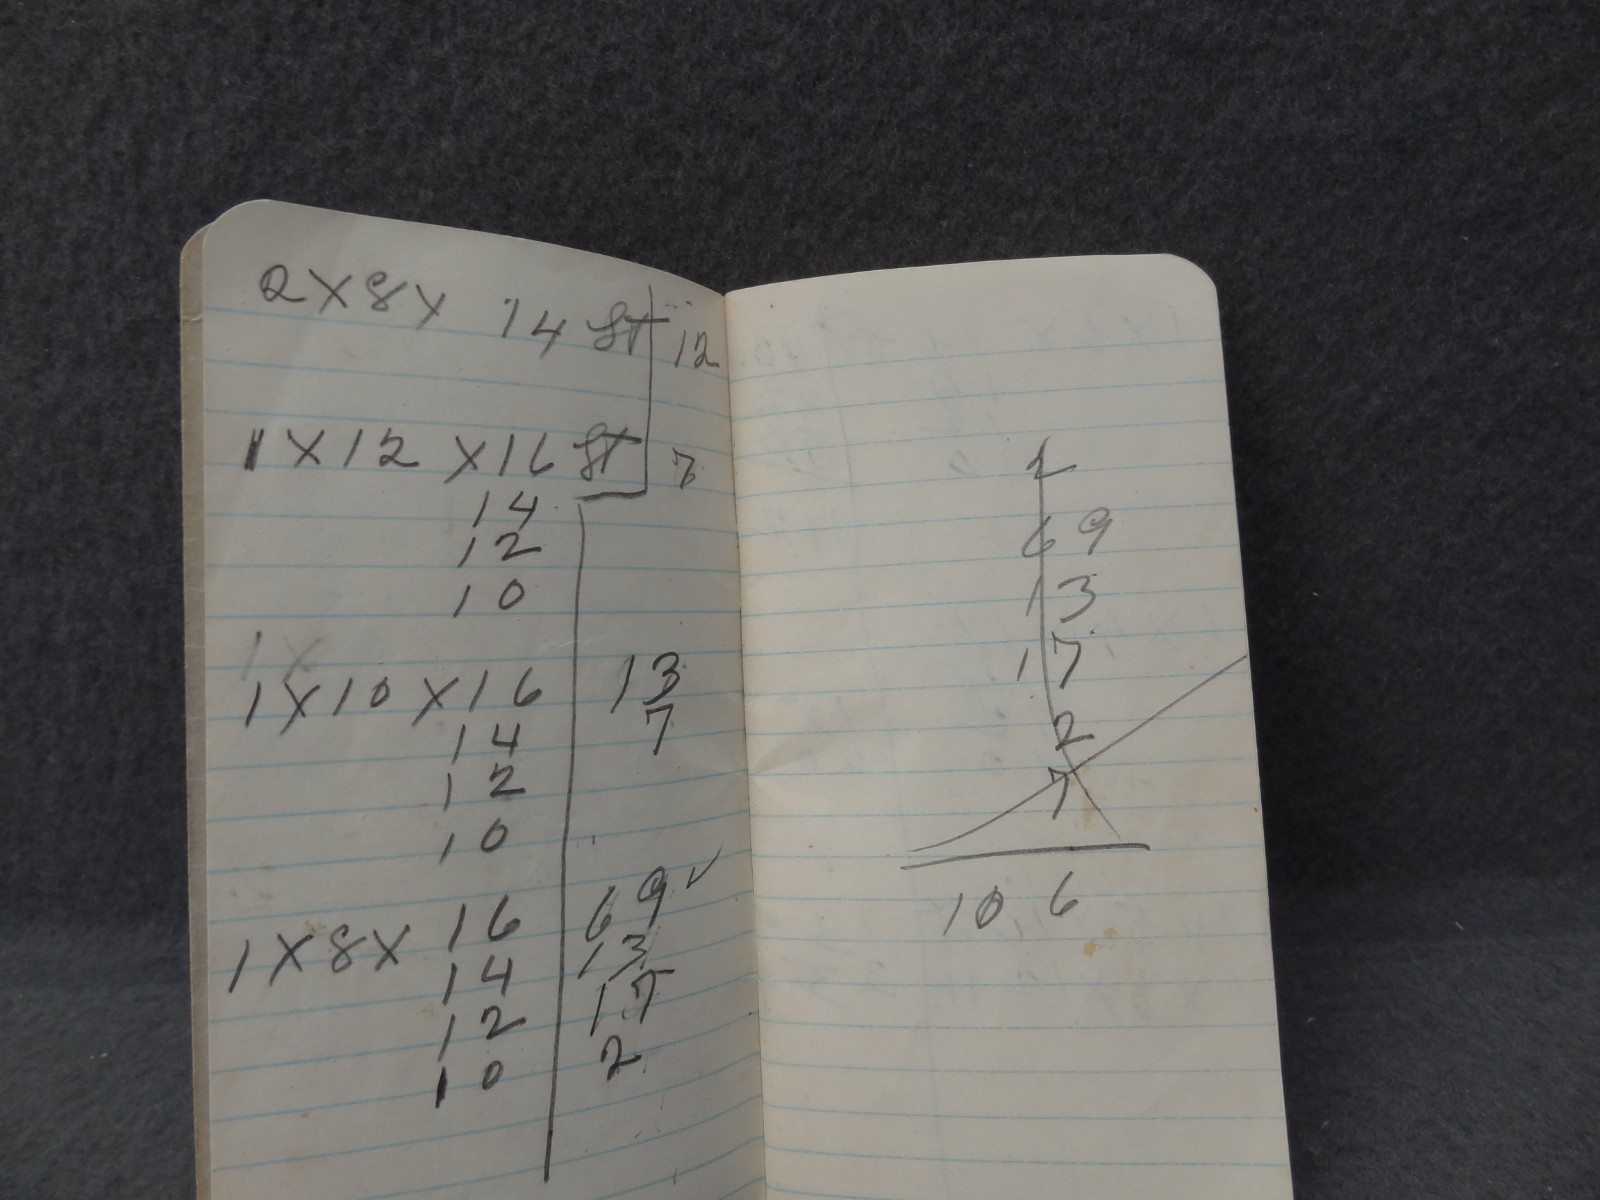 2 X 8 X 14 ft 12
1 X 12 X 16 ft 7
14
12
10
1 X
1 X 10 X 16 13
14 7
12
10
1 X 8 X 16 69 ✓
14 13
12 17
10 2
2
69
13
17
2
7
106